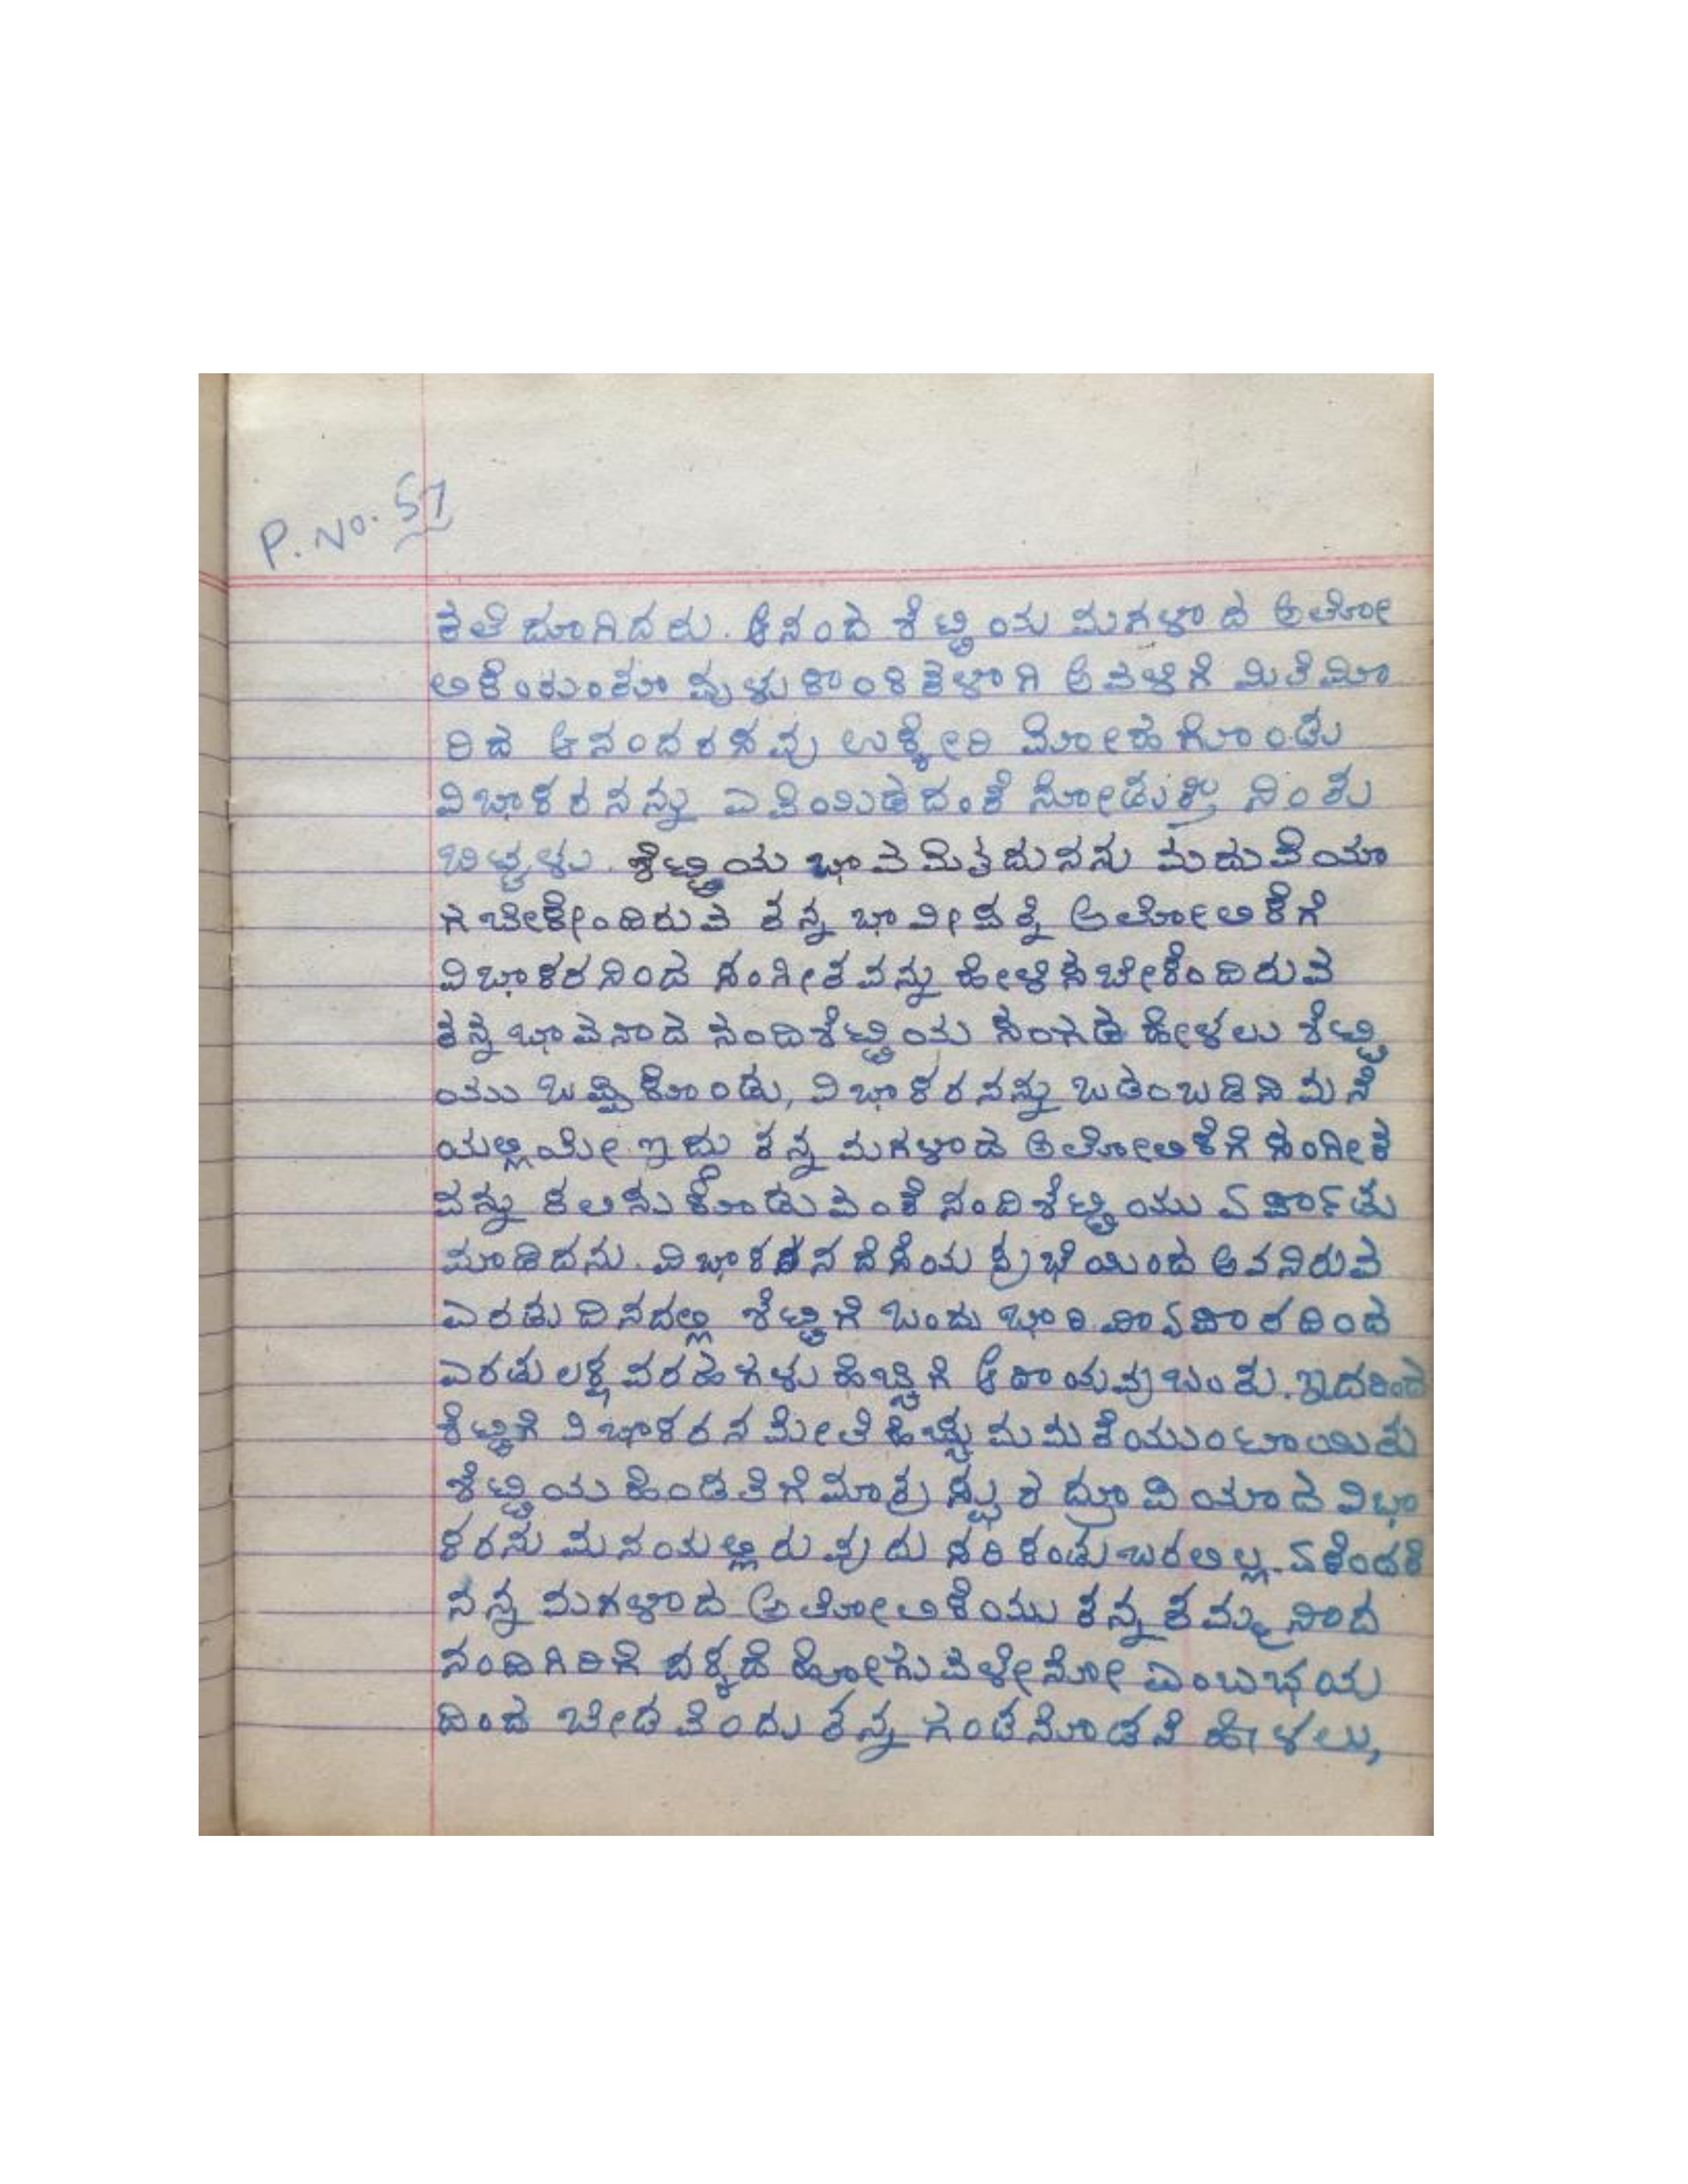 P. No. 57
ತಲೆ ದೂಗಿದರು. ಆನಂದ ಶೆಟ್ಟಿಯ ಮಗಳಾದ ಅಲೋ
ಲಿಕೆಯಂತೂ ಪುಳಕಾಂಕಿತಳಾಗಿ ಅವಳಿಗೆ ಮಿತಿಮೀ
ರಿದ ಆನಂದರಸವು ಉಕ್ಕೇರಿ ಮೋಹಗೊಂಡು
ವಿಭಾಕರನನ್ನು ಎವೆಯಿಡದಂತೆ ನೋಡುತ್ತಾ ನಿಂತು
ಬಿಟ್ಟಳು. ಶೆಟ್ಟಿಯ ಭಾವಮೈತದುನನು ಮದುವೆಯಾ
ಗಬೇಕೇಂದಿರುವ ತನ್ನ ಭಾವೀಪತ್ನಿ ಅಲೋಲಿಕೆಗೆ
ವಿಭಾಕರನಿಂದ ಸಂಗೀತವನ್ನು ಹೇಳಿಸಬೇಕೆಂದಿರುವ
ತನ್ನ ಭಾವನಾದ ನಂದಿಶೆಟ್ಟಿಯ ಸಂಗಡ ಹೇಳಲು ಶೆಟ್ಟಿ
ಯು ಒಪ್ಪಿಕೊಂಡು, ವಿಭಾಕರನನ್ನು ಒಡಂಬಡಿಸಿ ಮನೆ
ಯಲ್ಲಿಯೇ ಇದ್ದು ತನ್ನ ಮಗಳಾದ ಅಲೋಲಿಕೆಗೆ ಸಂಗೀತ
ವನ್ನು ಕಲಿಸುಕೊಡುವಂತೆ ನಂದಿಶೆಟ್ಟಿಯು ಏರ್ಪಾಡು
ಮಾಡಿದನು. ವಿಭಾಕರನ ದೆಸೆಯ ಪ್ರಭೆಯಿಂದ ಅವನಿರುವ
ಎರಡು ದಿನದಲ್ಲಿ ಶೆಟ್ಟಿಗೆ ಬಂದು ಭಾರಿ ವ್ಯಾಪಾರದಿಂದ
ಎರಡು ಲಕ್ಷ ವರಹಗಳು ಹೆಚ್ಚಿಗೆ ಆದಾಯವು ಬಂತು. ಇದರಿಂದ
ಶೆಟ್ಟಿಗೆ ವಿಭಾಕರನ ಮೇಲೆ ಹೆಚ್ಚು ಮಮತೆಯುಂಟಾಯಿತು
ಶೆಟ್ಟಿಯ ಹೆಂಡತಿಗೆ ಮಾತ್ರ ಸ್ಫುರದ್ರೂಪಿಯಾದ ವಿಭಾ
ಕರನು ಮನೆಯಲ್ಲಿರುವುದು ಸರಿಕಂಡುಬರಲಿಲ್ಲ. ಏಕೆಂದರೆ
ನನ್ನ ಮಗಳಾದ ಅಲೋಲಿಕೆಯು ತನ್ನ ತಮ್ಮನಾದ
ನಂದಿಗಿರಿಗೆ ದಕ್ಕದೆ ಹೋಗುವಳೇನೋ ಎಂಬ ಭಯ
ದಿಂದ ಬೇಡವೆಂದು ತನ್ನ ಗಂಡನೊಡನೆ ಹೇಳಲು,